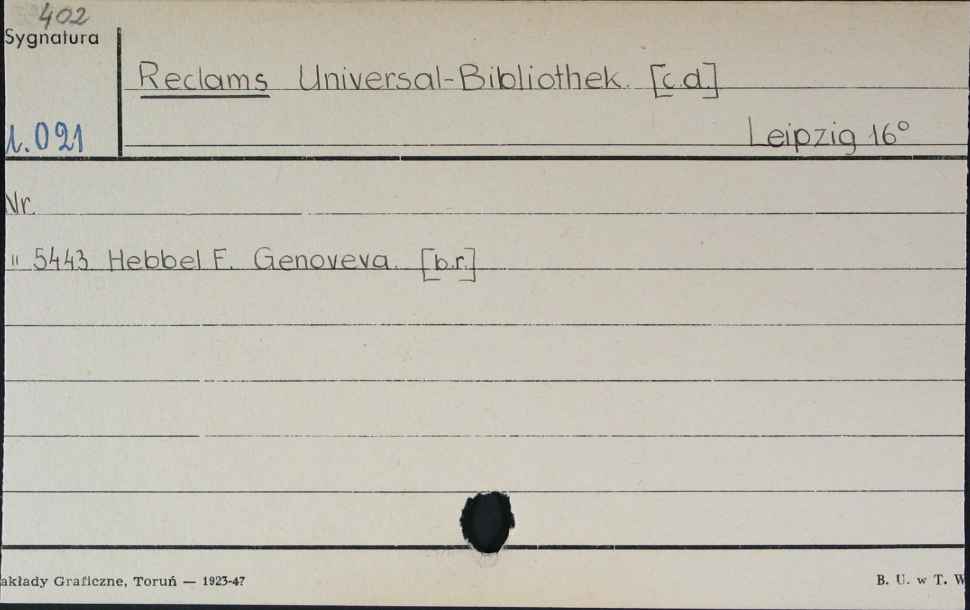 402
Sygnatura
Reclams Universal-Bibliothek. [c.d.]
1.021
Leipzig 16°
Nr.
" 5443 Hebbel F. Genoveva. [b.r.]
akłady Graficzne, Toruń — 1923-47
B. U. w T. W